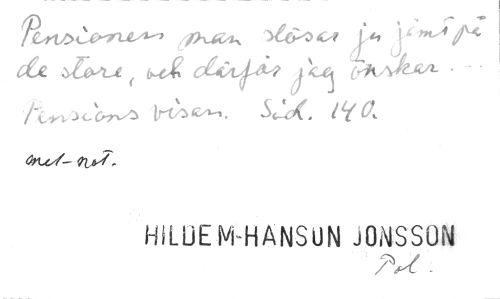 Pensionen man slösar ju jämt på
de store, och därför jag önskar...
Pensions visan. Sid. 140.
mel-not.
HILDEM-HANSON JONSSON
Pol.